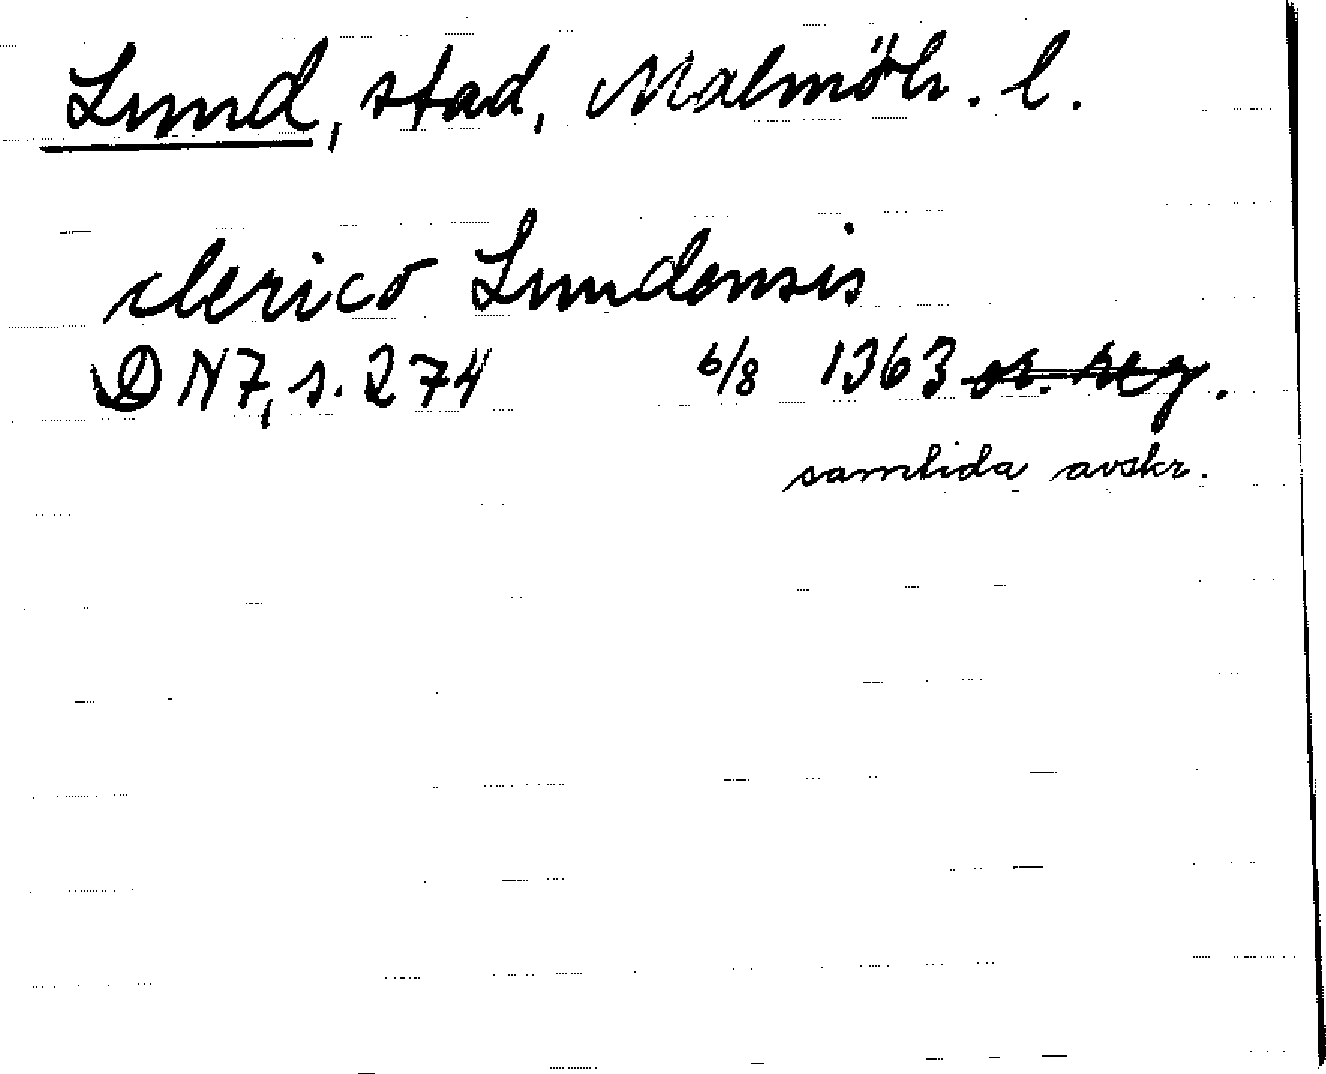 Lund, stad, Malmöh. l.
clerico Lundensis
DN7, s. 274 6/8 1363 or. reg.
samtida avskr.